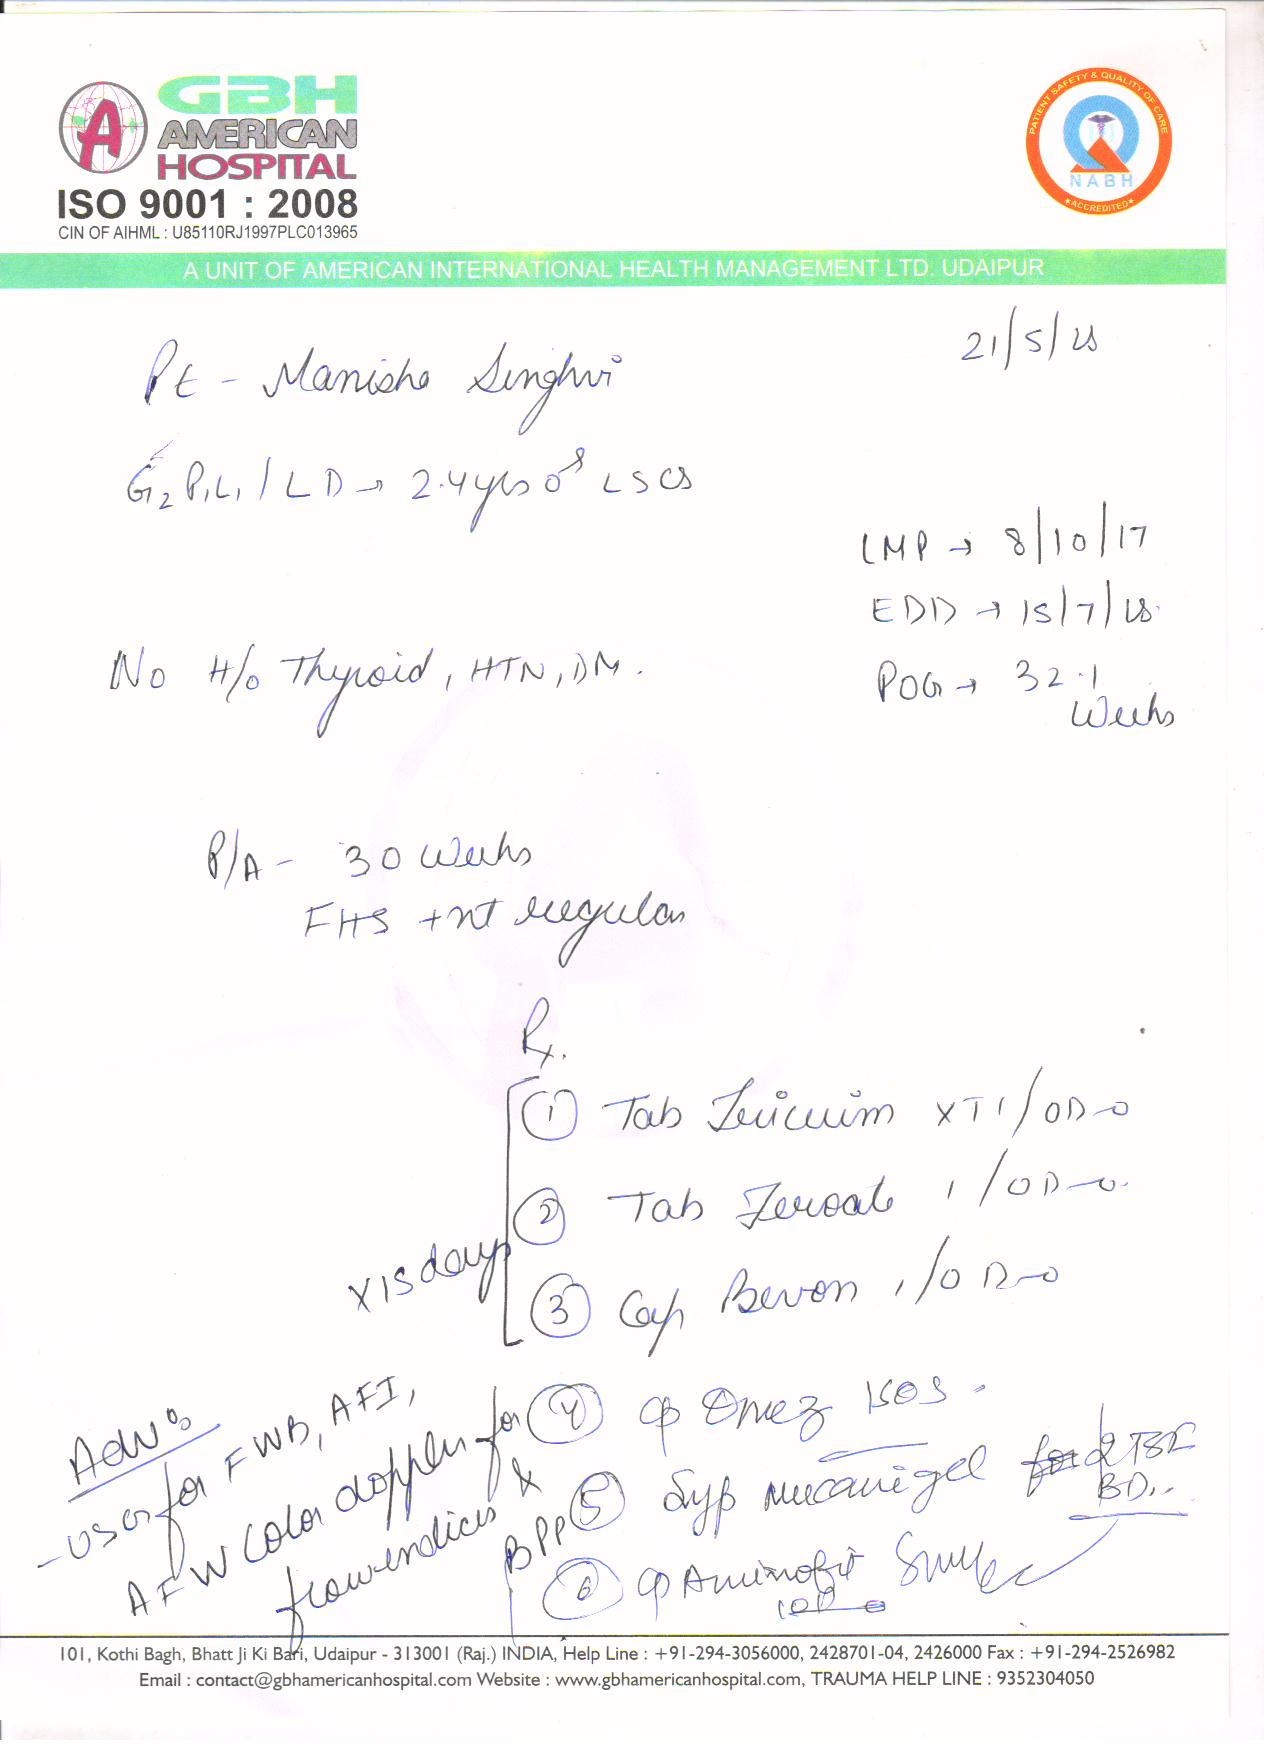 GBH
AMERICAN
HOSPITAL
ISO 9001 : 2008
CIN OF AIHML : U85110RJ1997PLC013965
PATIENT SAFETY & QUALITY OF CARE
NABH
ACCREDITED
A UNIT OF AMERICAN INTERNATIONAL HEALTH MANAGEMENT LTD. UDAIPUR
21/5/18
Pt - Manisha Singhvi
G2 P1L1 / LD → 2.4 yrs LSCS
LMP → 8/10/17
EDD → 15/7/18
No H/o Thyroid, HTN, DM.
POG → 32.1
Weeks
P/A - 30 Weeks
FHS +nt regular
Rx.
1 Tab XT 1/OD
2 Tab 1/OD
X15days
3 Cap Bevon 1/OD
Adv:
4 Omez SOS
- USG for FWB, AFI,
AFW Color doppler for
flow indices &
BPP
5 Syp Mucainegel 2 TSF
BD
6
101, Kothi Bagh, Bhatt Ji Ki Bari, Udaipur - 313001 (Raj.) INDIA, Help Line : +91-294-3056000, 2428701-04, 2426000 Fax : +91-294-2526982
Email : contact@gbhamericanhospital.com Website : www.gbhamericanhospital.com, TRAUMA HELP LINE : 9352304050